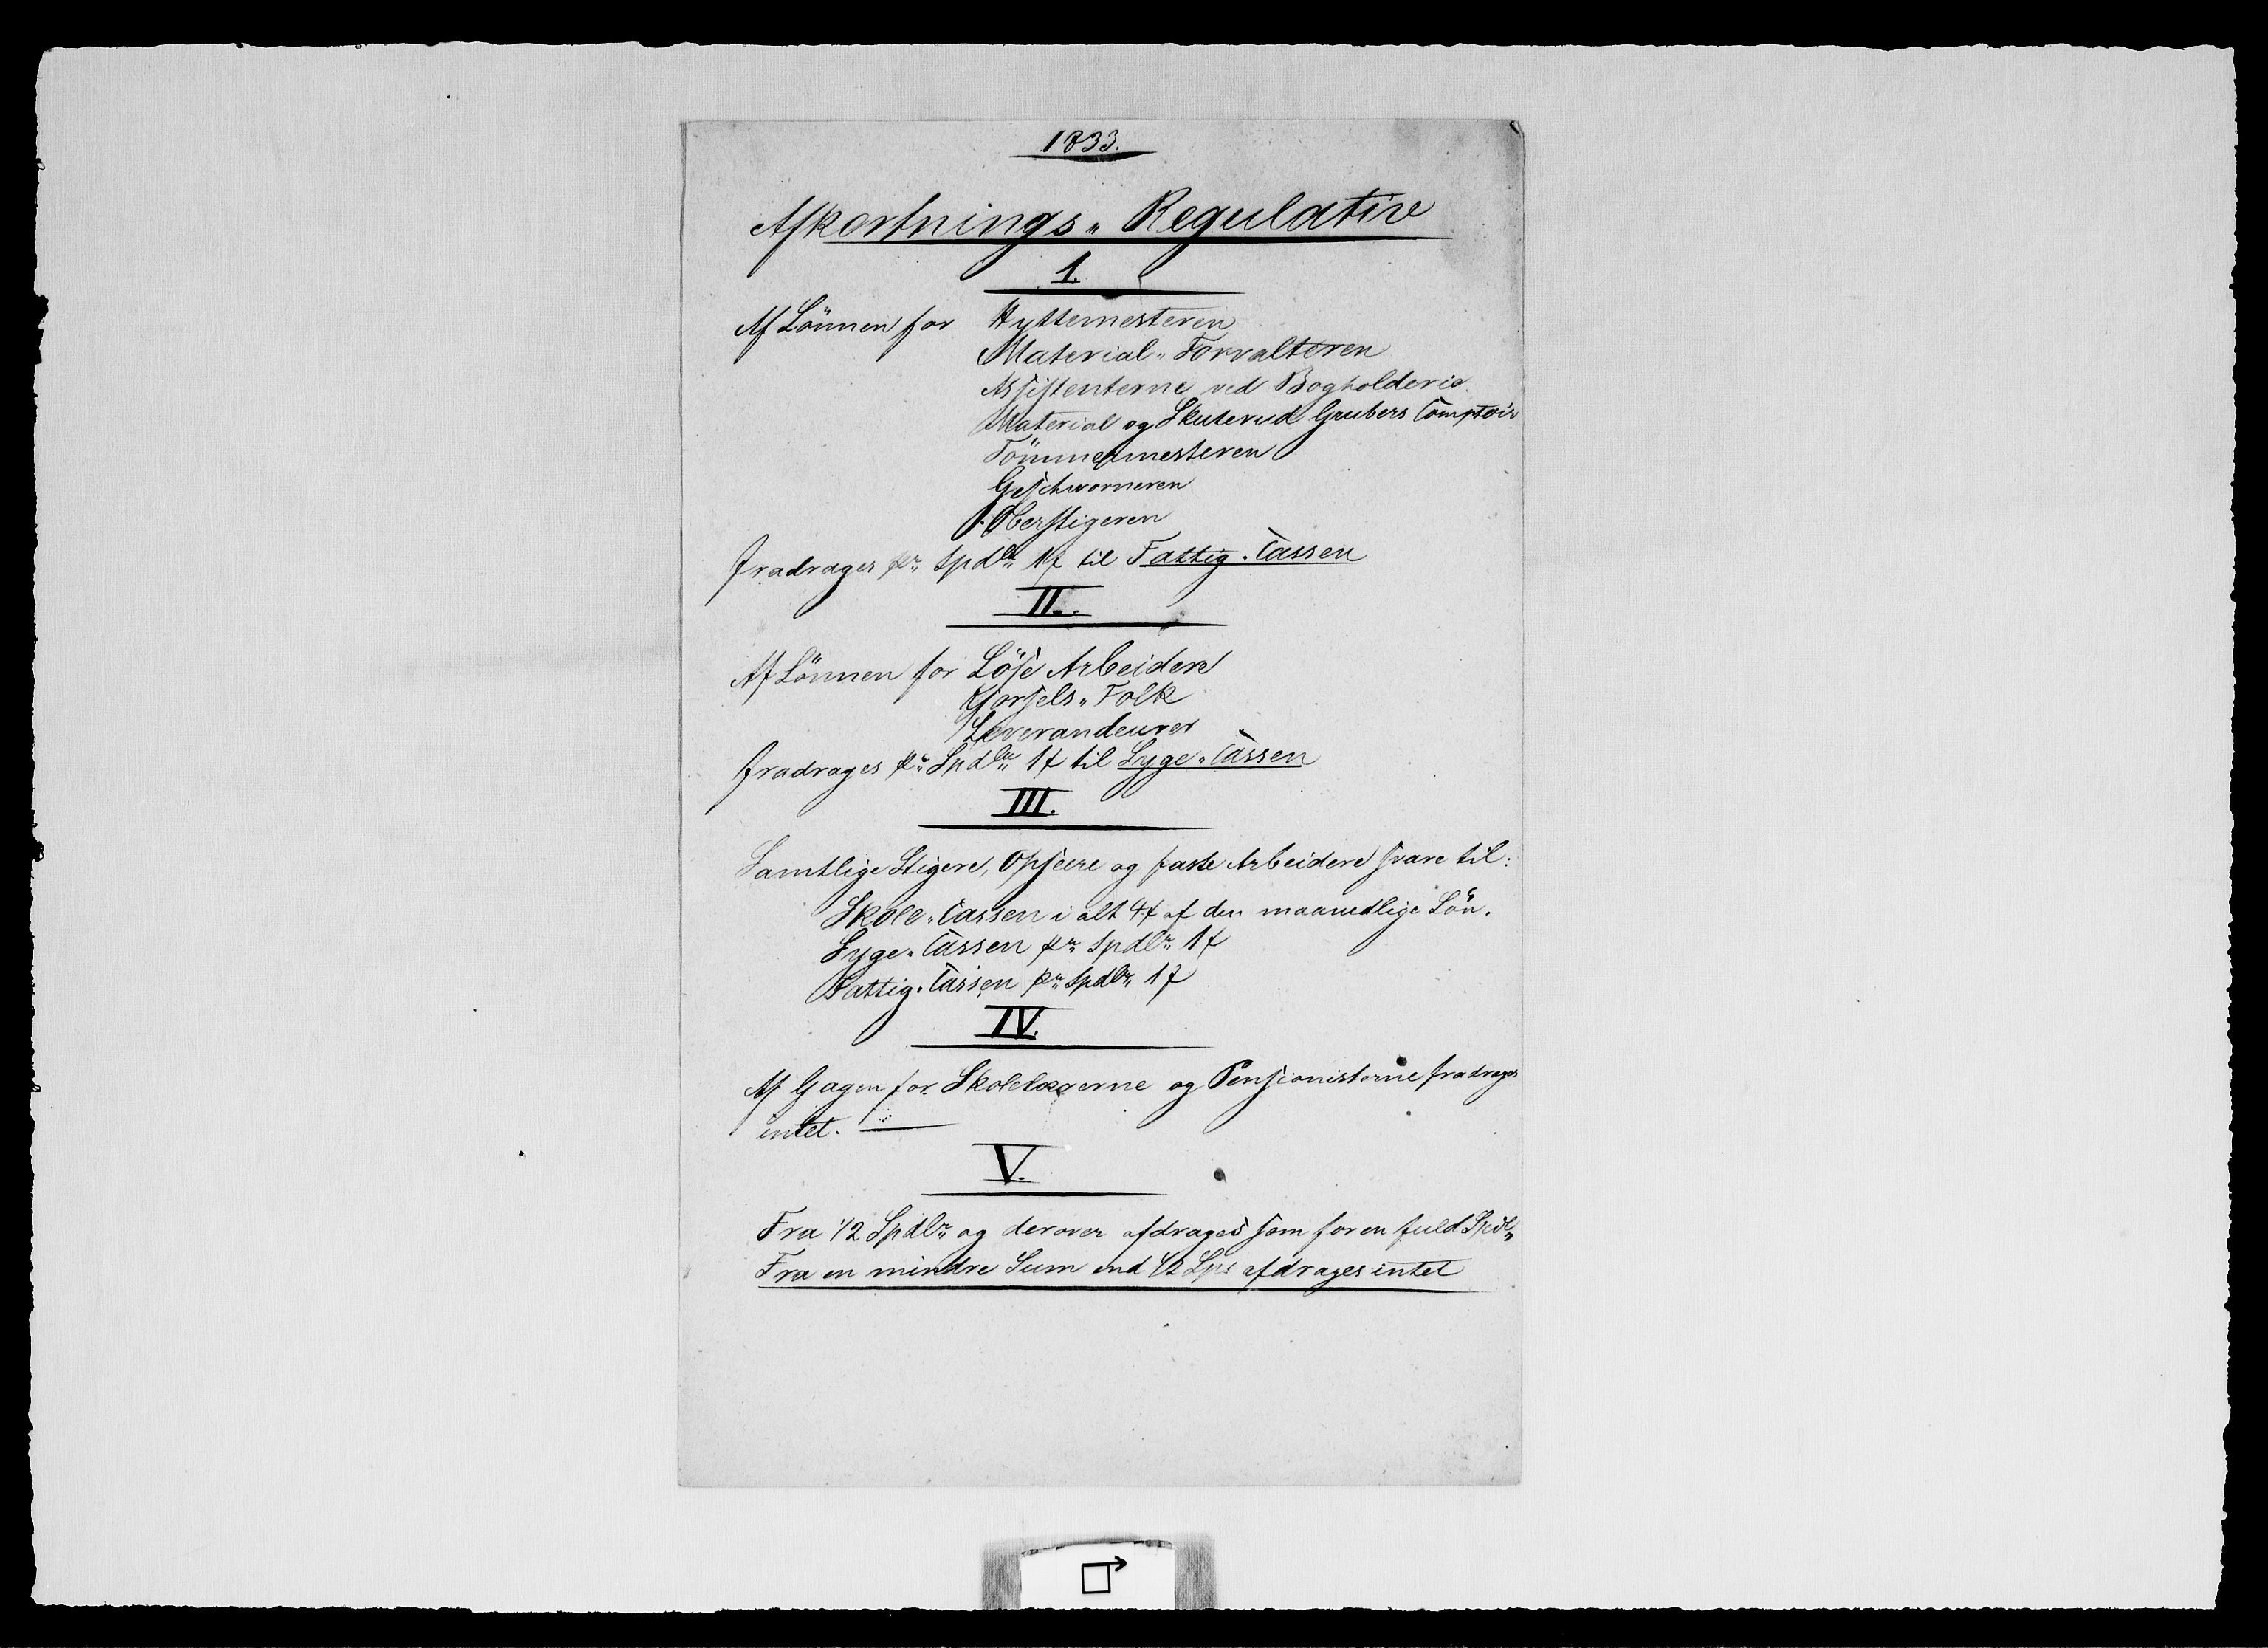 1833.
Afkortnings „ Regulativ
1.
Af Lönnen for Hyttemesteren
Material „ Forvalteren
Assistenterne ved Bogholderie
Material og Skuterud Grubers Comptoir
Tömmermesteren
Geschworneren
Oberstigeren
fradrages pr Spdlr 1 ß til Fattig „ Cassen
II.
Af Lönnen for Löse Arbeidere
Kjorsels „ Folk
Leverandeurer
fradrages pr Spdlr 1 ß til Syge „ Cassen
III.
Samtlige Stigere, Opseere og faste Arbeidere svare til:
Skole „ Cassen i alt 4 ß af den maanedlige Lön.
Syge „ Cassen pr Spdlr 1 ß
Fattig „ Cassen pr Spdlr 1 ß
IV.
Af Gagen for og Pensionisterne fradrages
intet.
V.
Fra 1/2 Spdlr og derover afdrages som for en fuld Spdlr
Fra en mindre Sum end 1/2 Sps afdrages intet